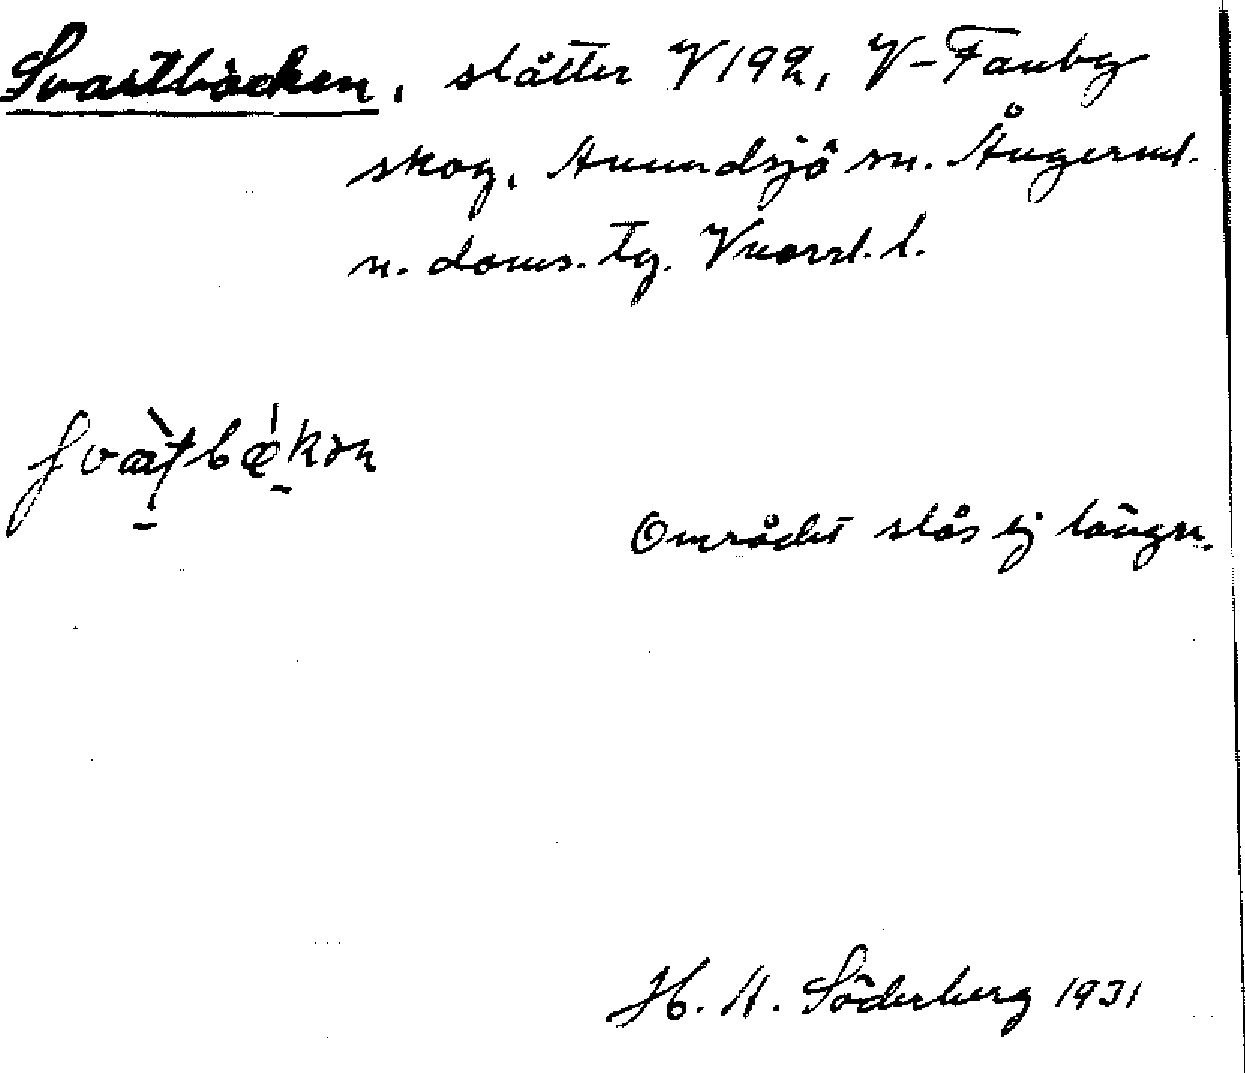 Svartbäcken, slåtter V 192, V-Fanby
skog, Anundsjö sn. Ångerml.
n. doms. tg. Vnorrl. l.
Området slås ej längre.
H. A. Söderberg 1931